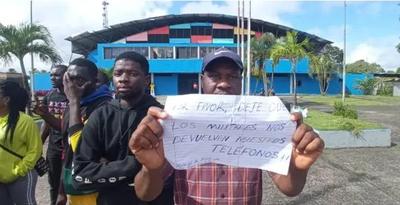 POR FAVOR, DEJE QUE
LOS MILITARES NOS
DEVUELVAN NUESTROS
TELÉFONOS